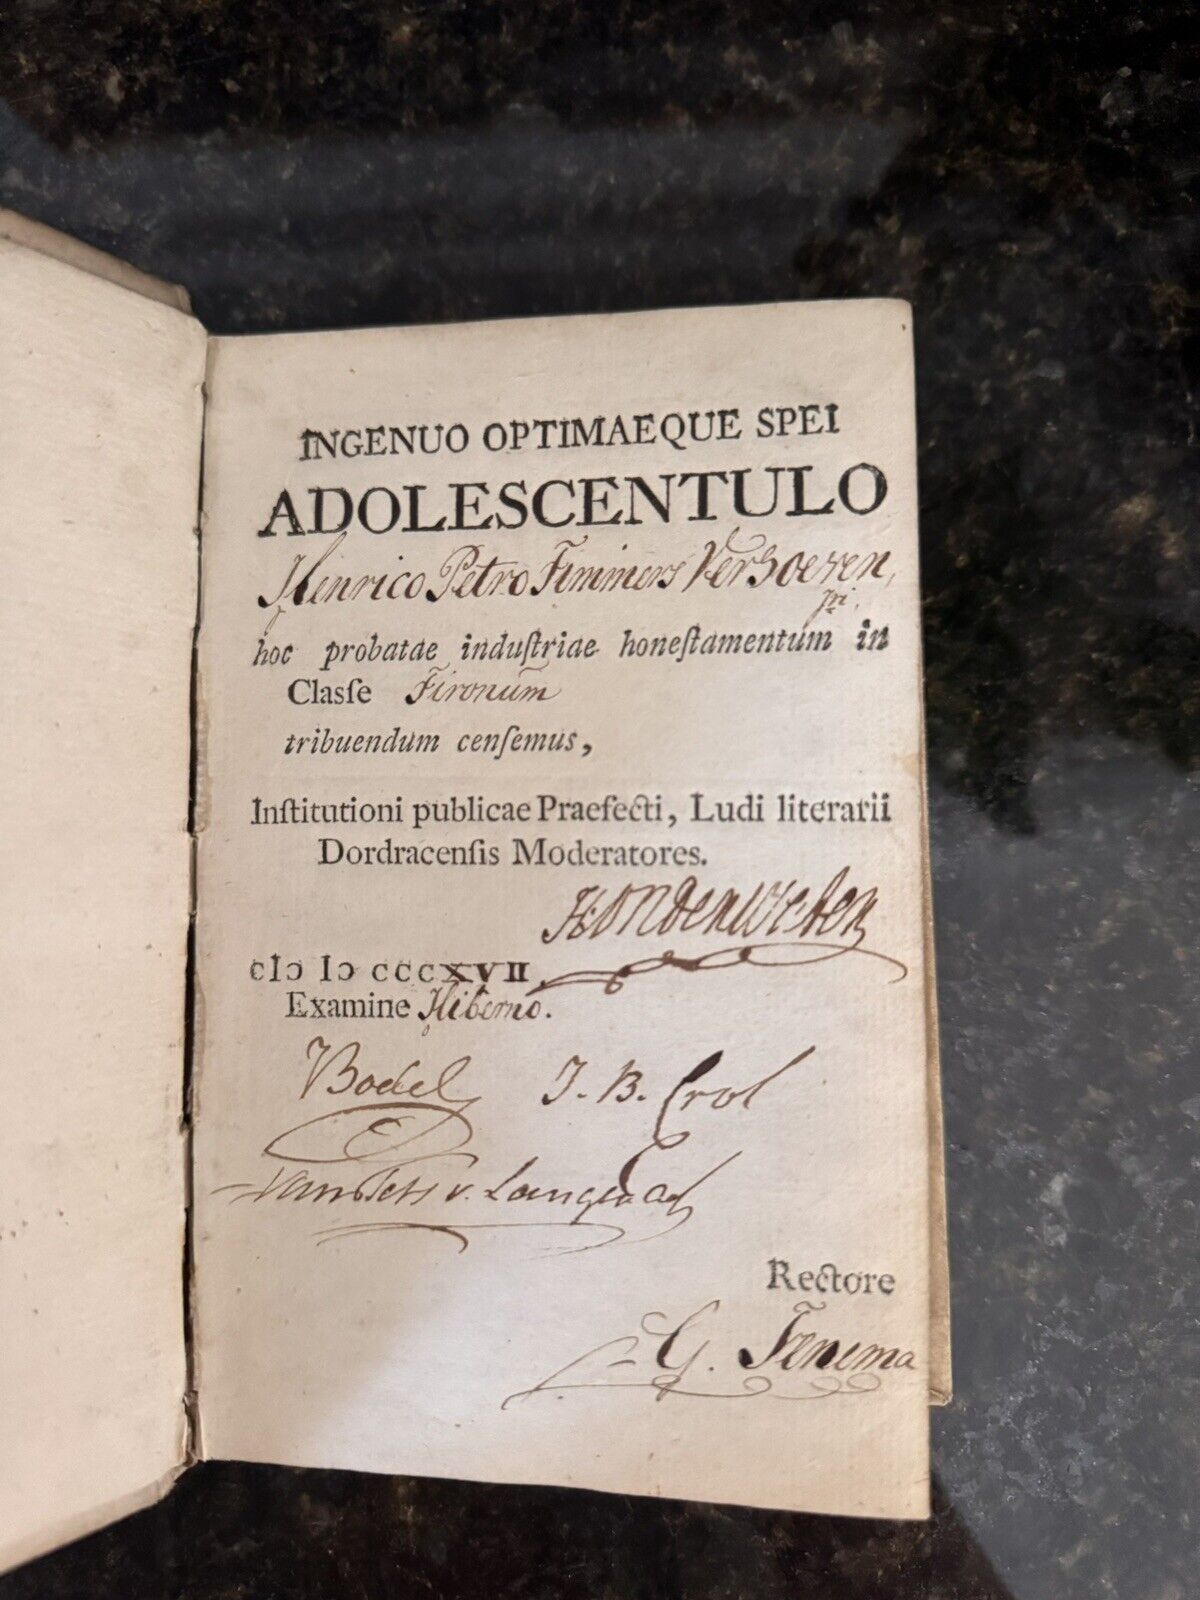 INGENUO OPTIMAEQUE SPEI
ADOLESCENTULO
Henrico Petro Timmers Verhoeven,
pri.
hoc probatae induſtriae honeſtamentum in
Claſſe Tironum
tribuendum cenſemus,
Inſtitutioni publicae Praefecti, Ludi literarii
Dordracenſis Moderatores.
cIↄ Iↄ cccxvii.
Examine Hiberno.
Bodel J. B. Crol
Rectore
G. Tenema